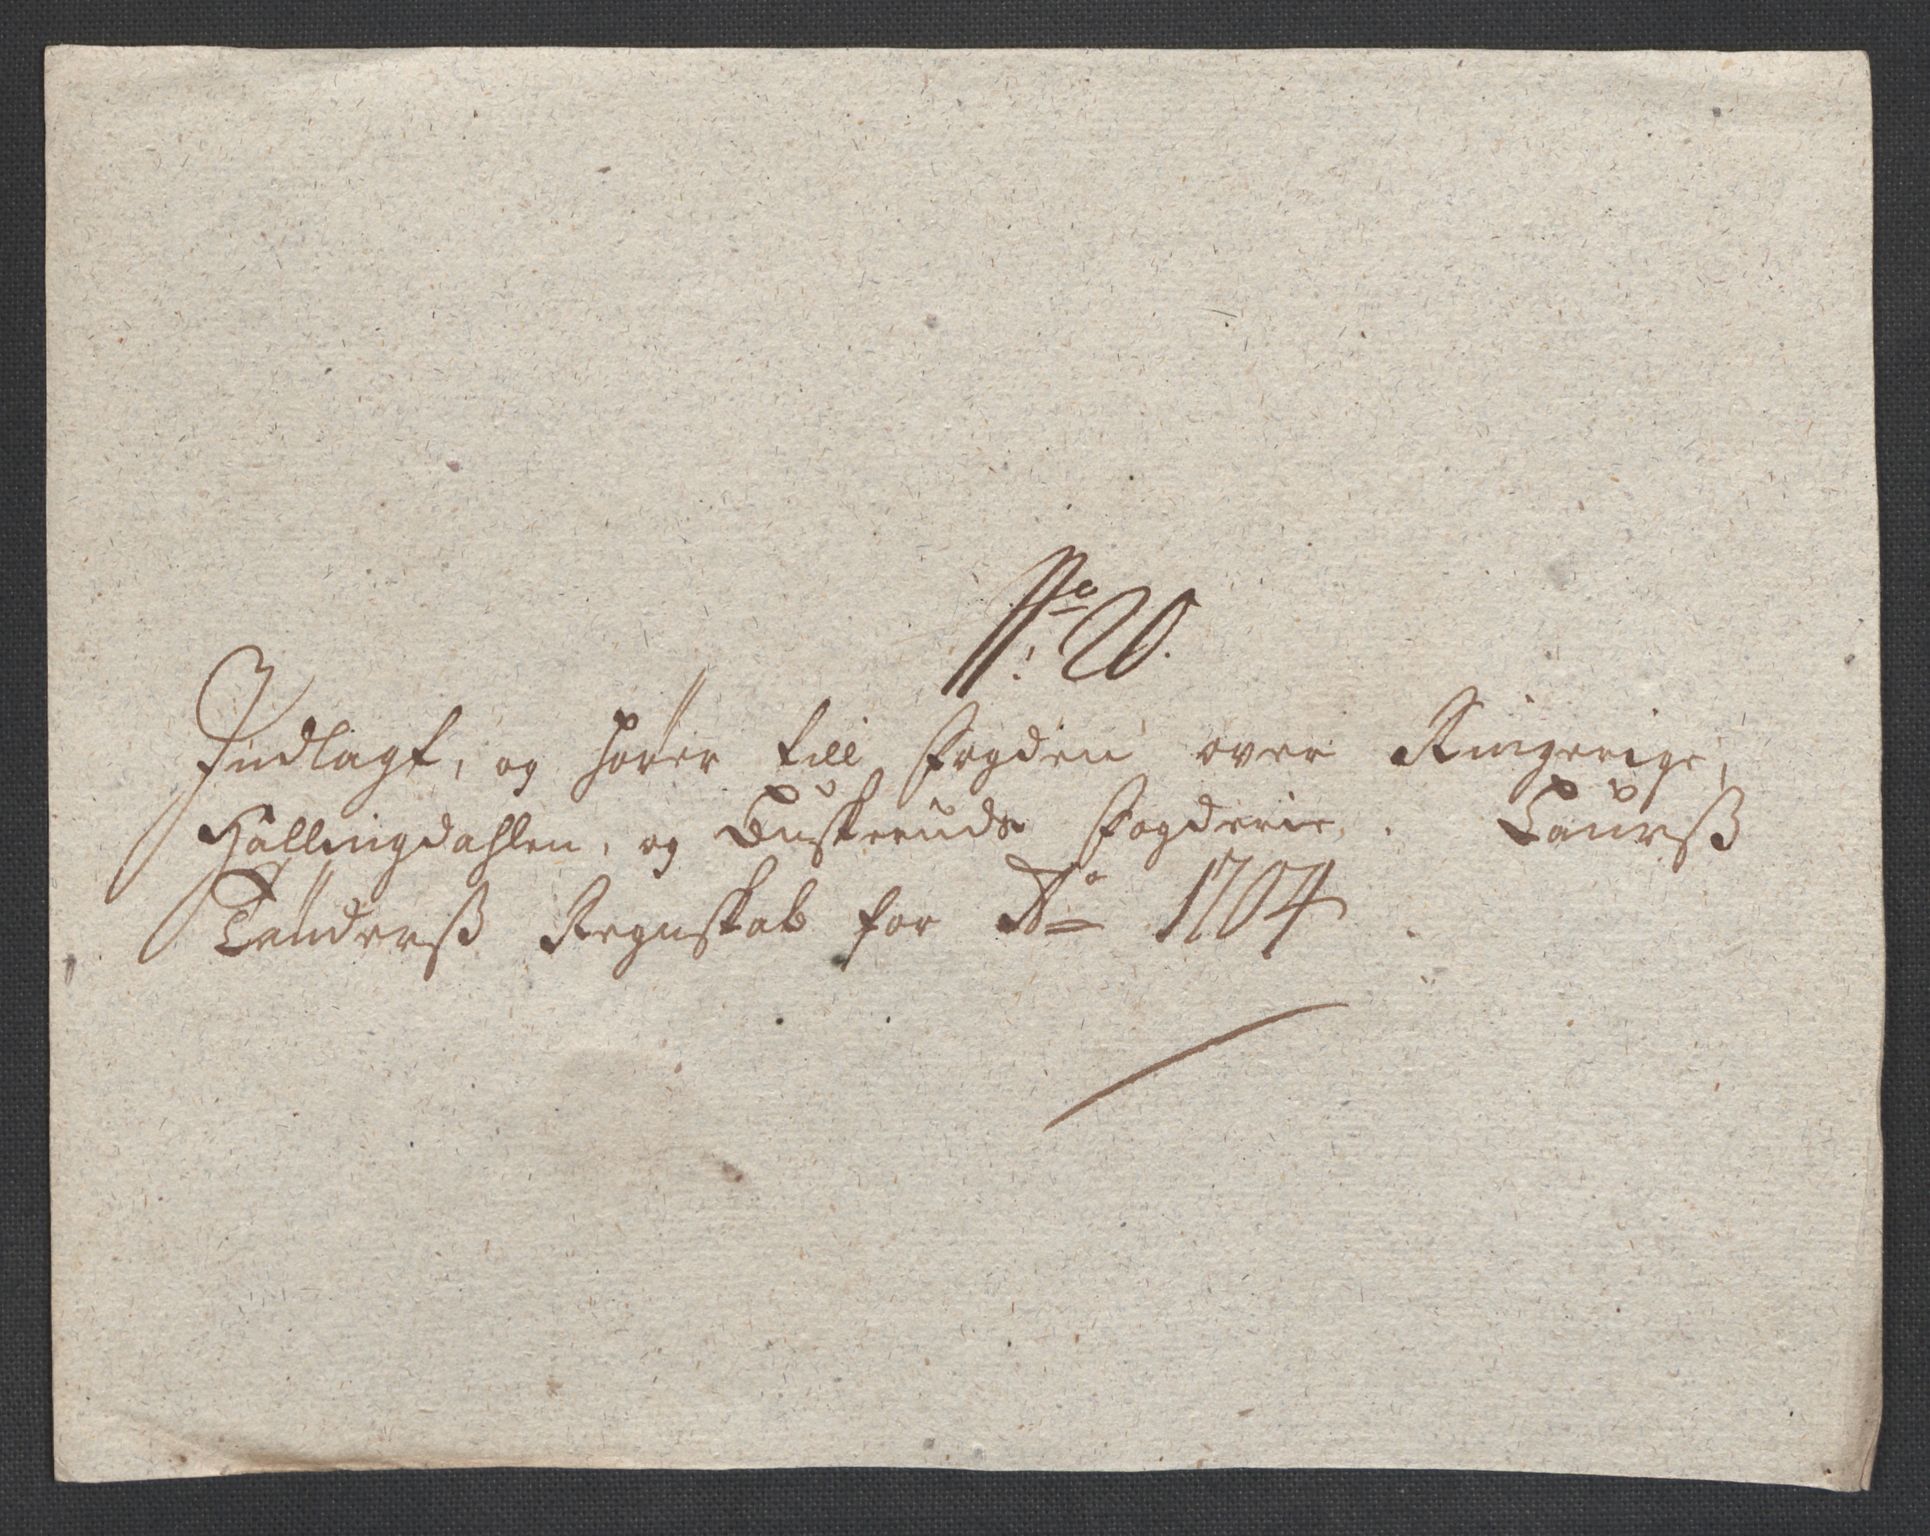 No: 20.
Indlagt, og hører till Fogden over Ringerige,
Hallingdahlen, og Buskeruds Fogderie. Laurß
Tønderß Regnskab for Ao 1704.